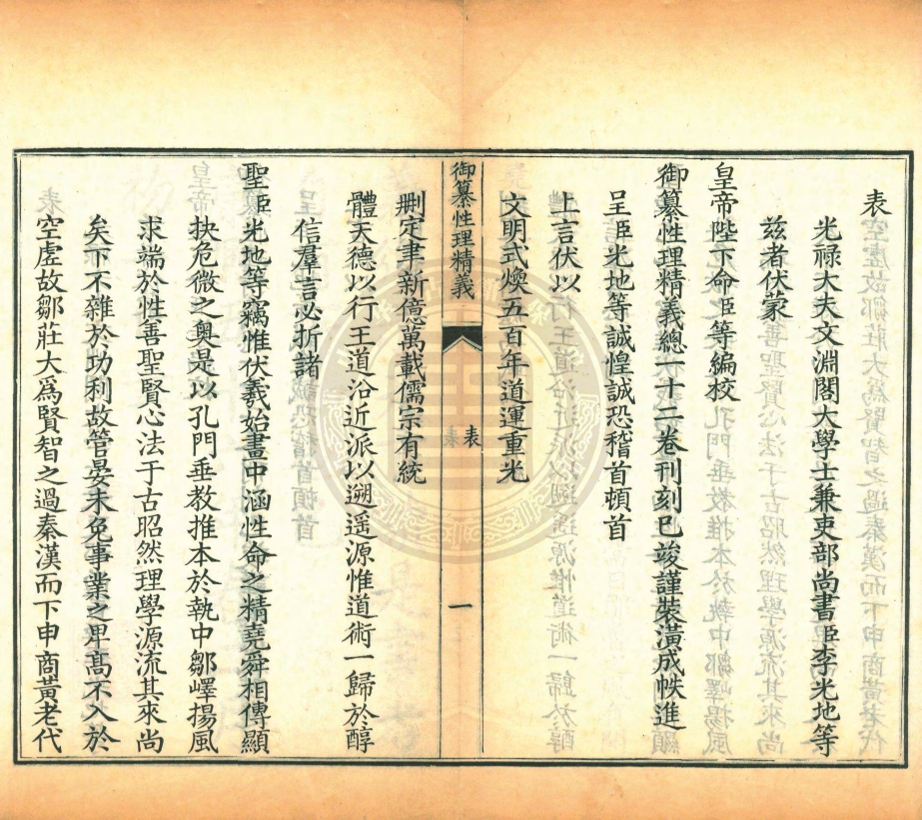 表
光禄大夫文淵閣大學士兼吏部尚書臣李光地等
兹者伏蒙
皇帝陛下命臣等編校
御纂性理精義總一十二卷刊刻已竣謹裝潢成帙進
呈臣光地等誠惶誠恐稽首頓首
上言伏以
文明式煥五百年道運重光
御纂性理精義
表
一
刪定聿新億萬載儒宗有統
體天德以行王道沿近派以遡遥源惟道術一歸於醇
信羣言必折諸
聖臣光地等竊惟伏羲始畫中涵性命之精堯舜相傳顯
抉危微之奥是以孔門垂教推本於執中鄒嶧揚風
求端於性善聖賢心法于古昭然理學源流其來尚
矣下不雜於功利故管晏未免事業之卑髙不入於
空虚故鄒莊大爲賢智之過秦漢而下申商黃老代